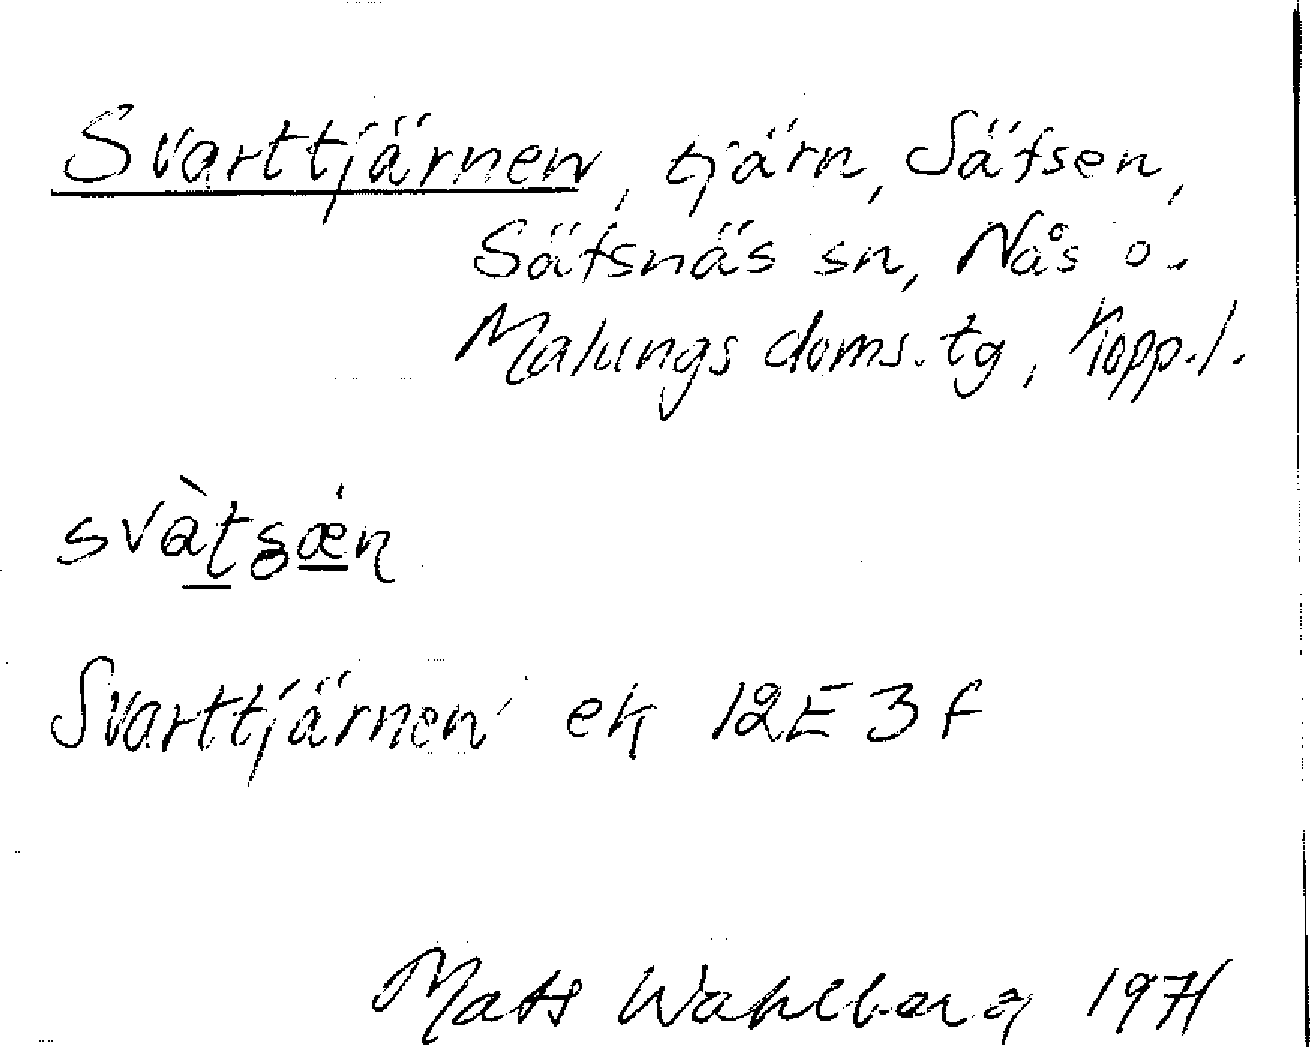 Svarttjärnen, tjärn, Säfsen,
Säfsnäs sn, Nås o.
Malungs doms.tg, Kopp.l.
svàtsæ̀n
Svarttjärnen ek 12E3f
Mats Wahlberg 1971